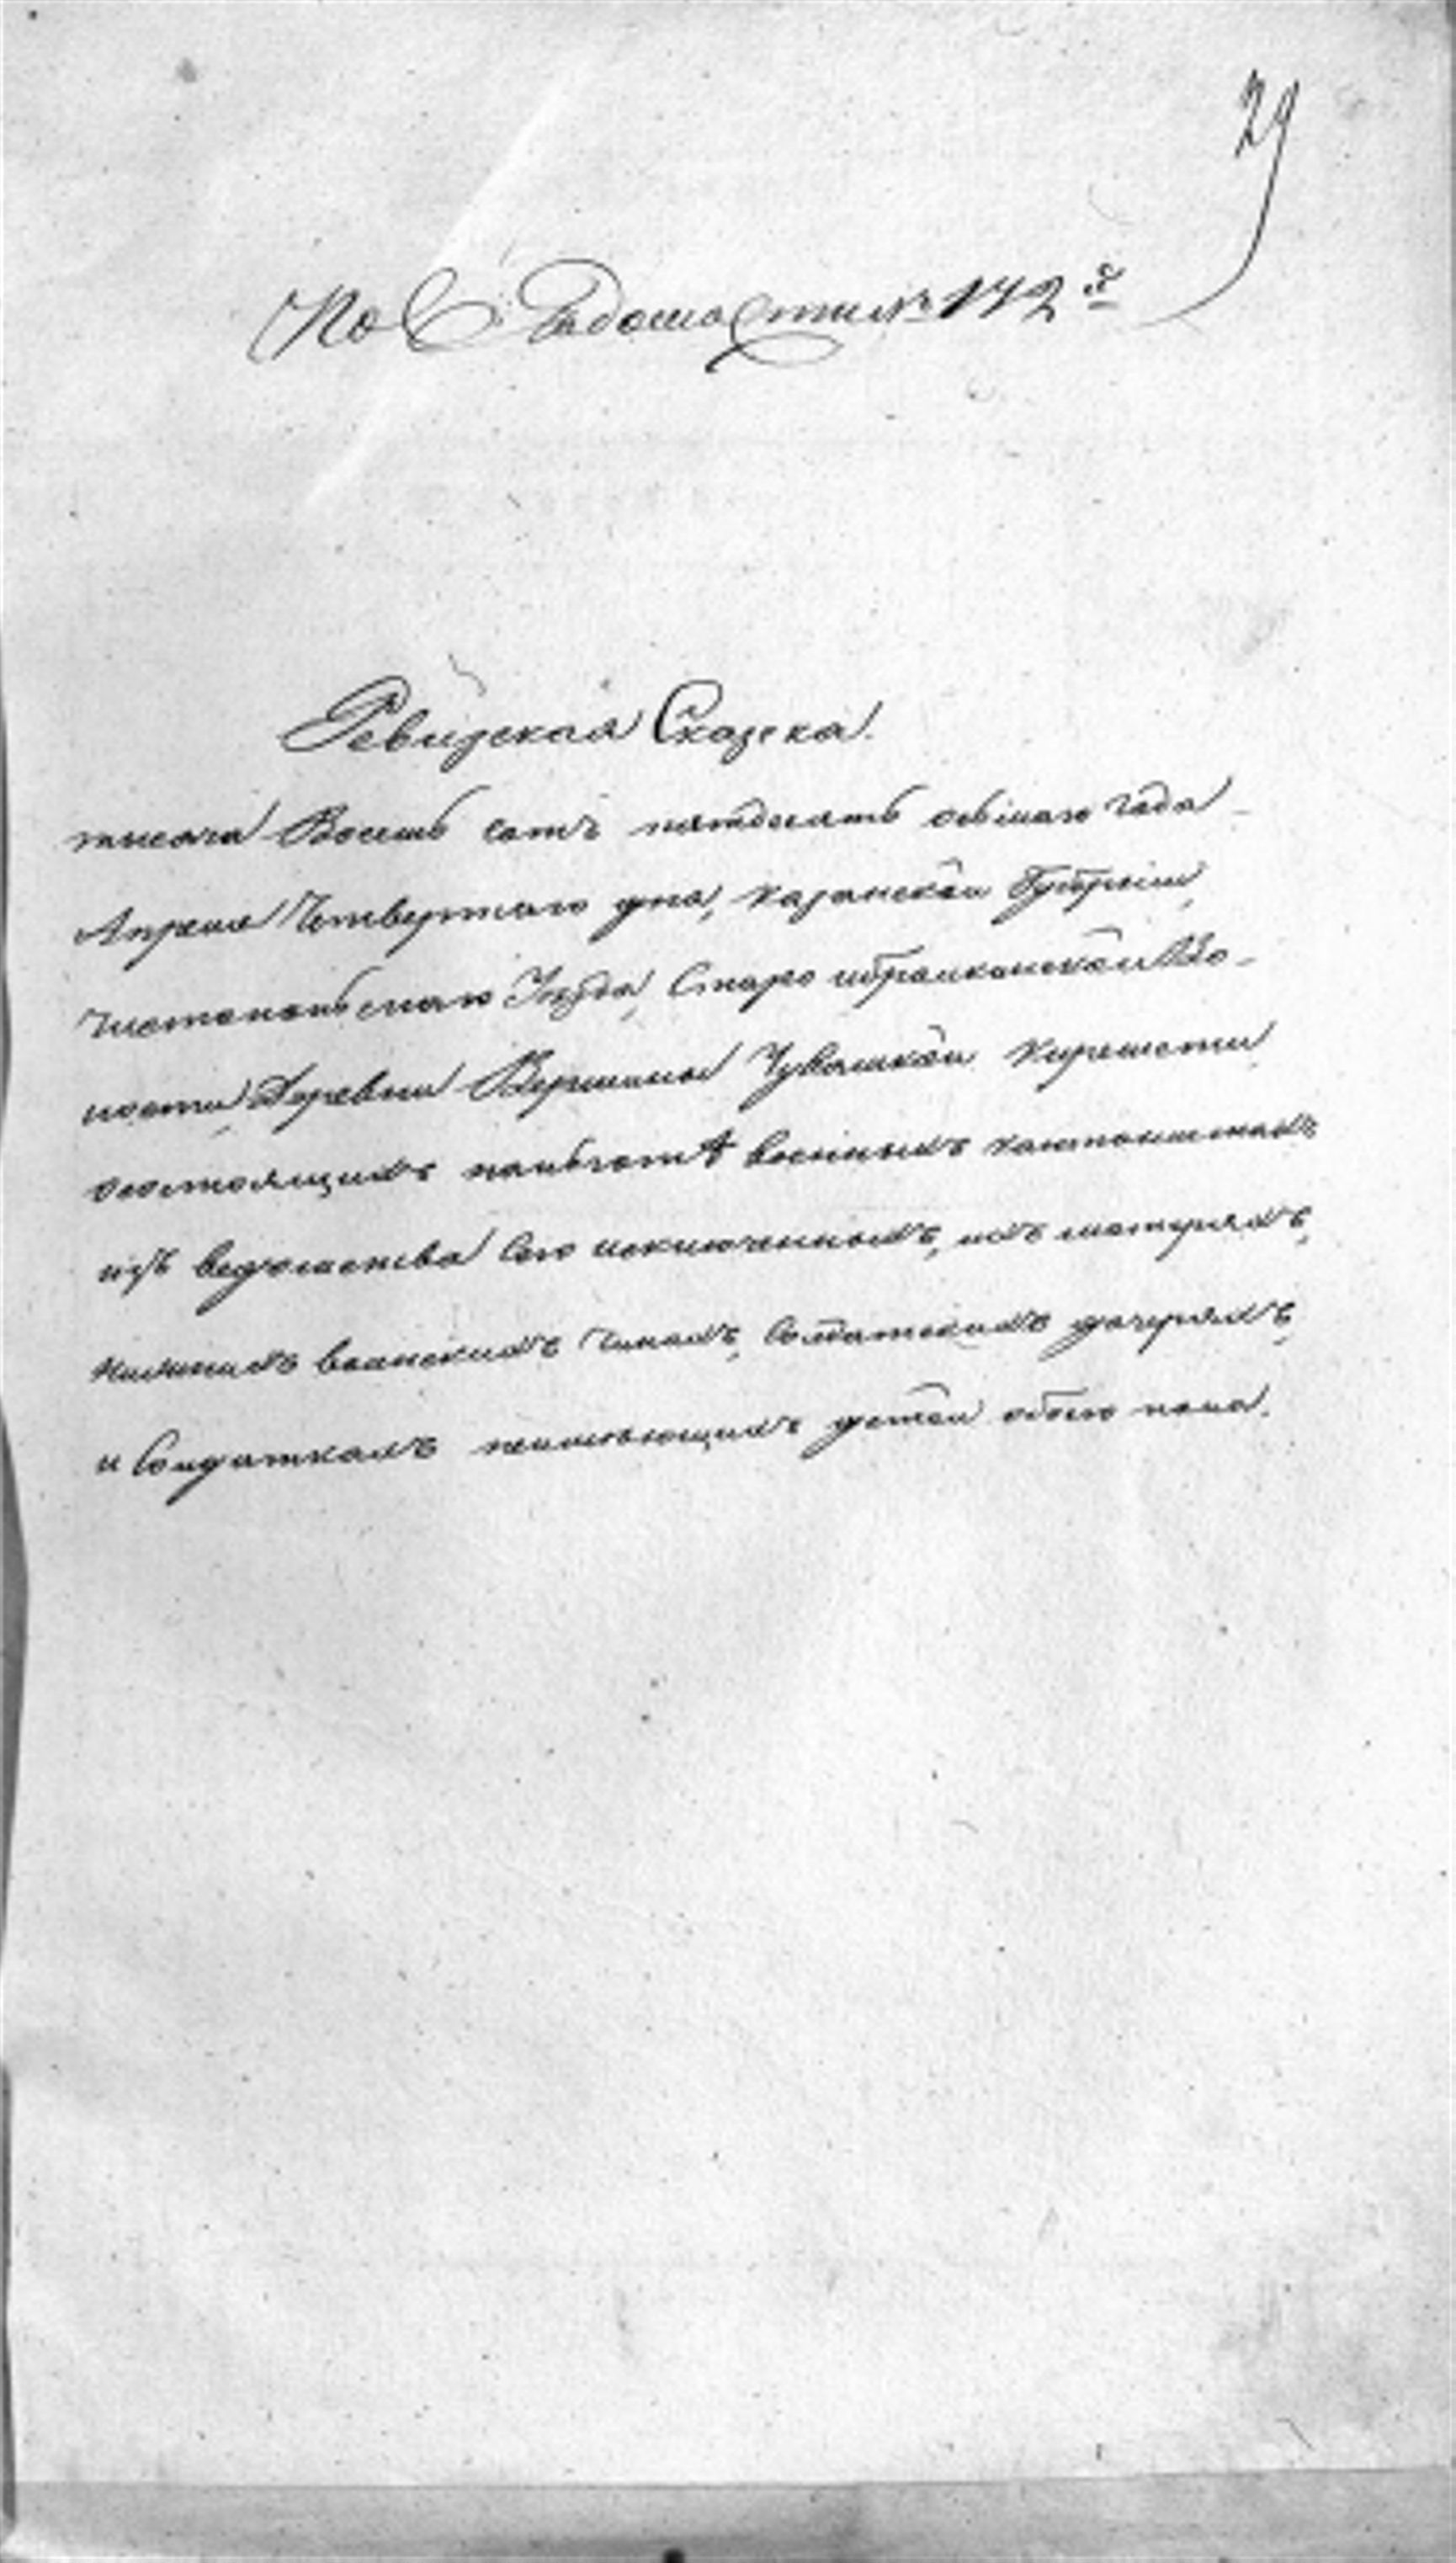 29
По Вѣдомости № 172й
Ревизская Сказка.
тысяча Восемь сотъ пятдесятъ осьмаго года
Апреля Четвертаго дня, Казанской Губерніи,
Чистопольскаго Уезда, Старо ибрайкинской Во-
лости, Деревни Вершины Чувашской Киремети
состоящихъ налицѣ военныхъ кантонистахъ
изъ ведомства сего исключенныхъ, ихъ матеряхъ,
нижнихъ воинскихъ чинахъ, Солдатскихъ дочеряхъ,
и Солдаткахъ неимеющихъ детей обоего пола.